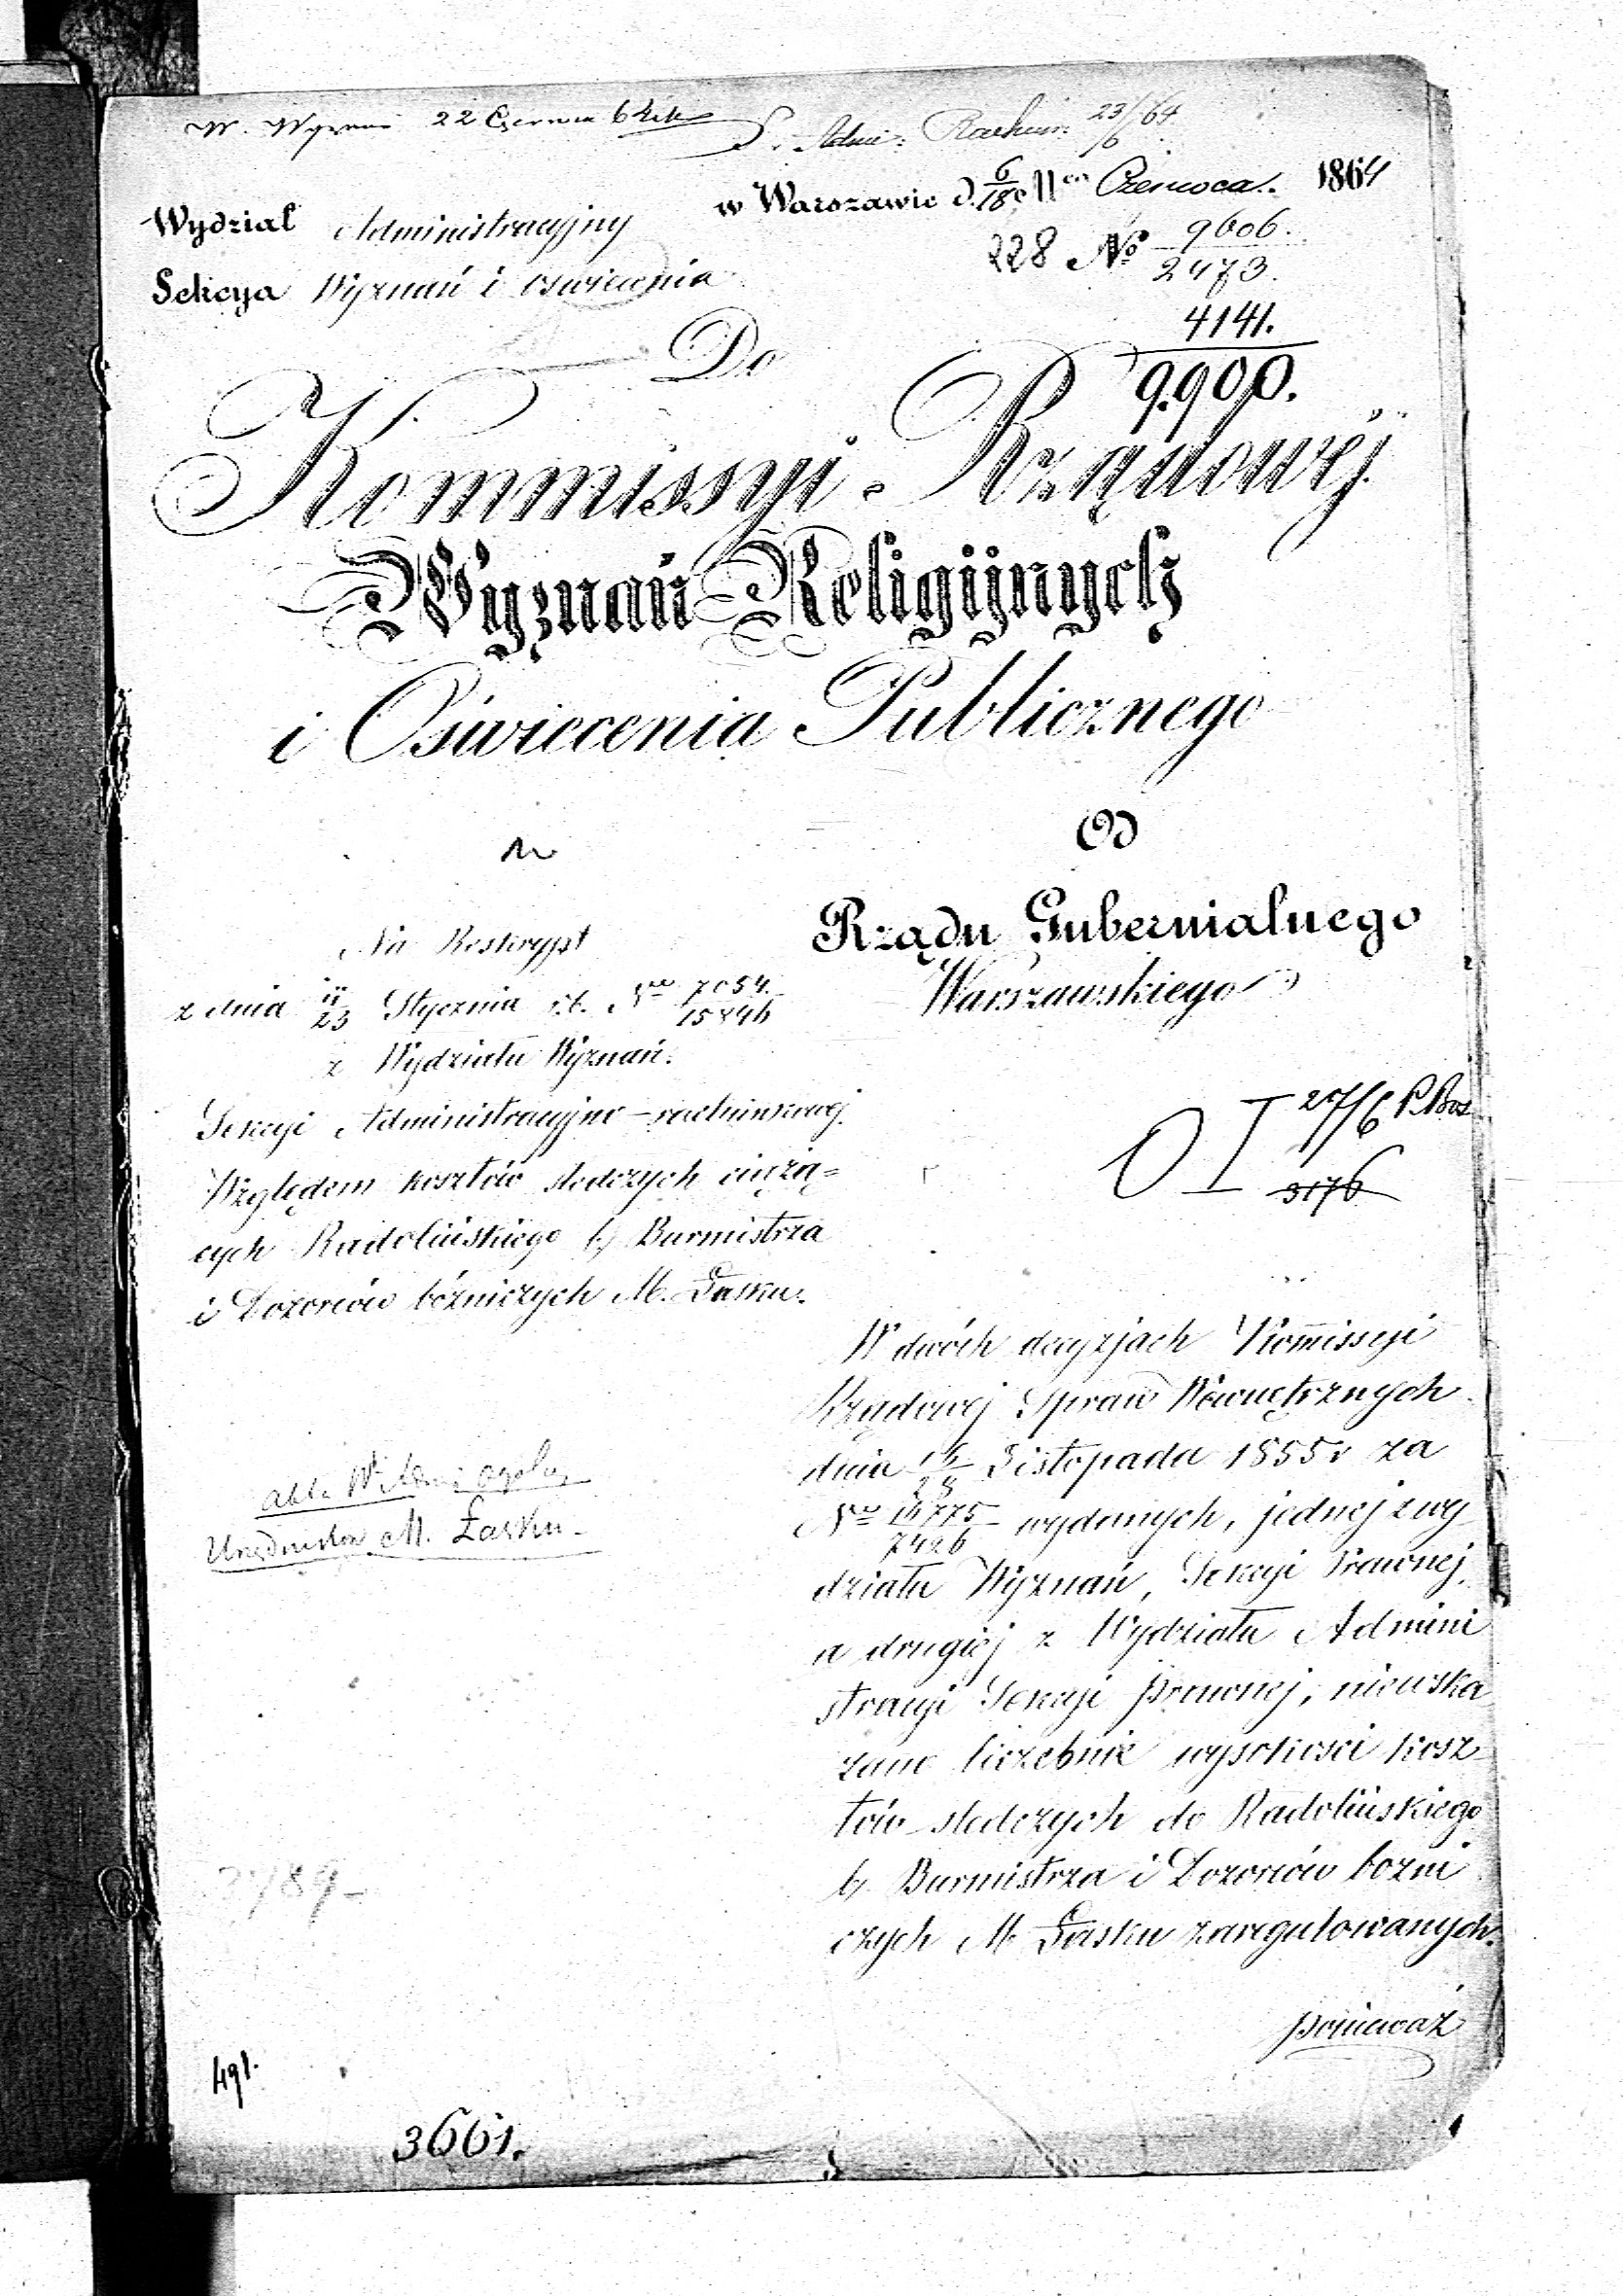 W. Wyznań 22 Czerwca 64
S. Admi: Rachun: 23/6 64
w Warszawie d. 6/18 Czerwca. 1864
Wydział Administracyjny
228 No 9606.
2473.
Sekcya Wyznań i oswiecenia
4141.
9900.
Do
Kommissyi Rządowéj
Wyznań Religijnych
i Oświecenia Publicznego
Od
Rządu Gubernialnego
Warszawskiego
Na Reskrypt
z dnia 11/23 Stycznia r.b. No 7054/15846
z Wydziału Wyznań.
Sekcyi Administracyjno-rachunkowej.
Względem kosztów śledczych ciążą=
cych Radolińskiego b. Burmistrza
i Dozorców bóżniczych M. Łasku.
27/6
3176
W dwóch decyzjach Kommissyi
Rządowej Spraw Wewnętrznych
dnia 16/28 Listopada 1855 r za
No 16775/7426 wydanych, jednej z wy
działu Wyznań, Sekcyi Prawnej,
a drugiéj z Wydziału Admini
stracyi Sekcyi prawnej, niewska
zano liczebnie wysokości kosz
tów śledczych do Radolińskiego
b. Burmistrza i Dozorców bożni
czych M. Łasku zaregulowanych.
ponieważ
Urzędników M. Łasku
2789
491.
3661.